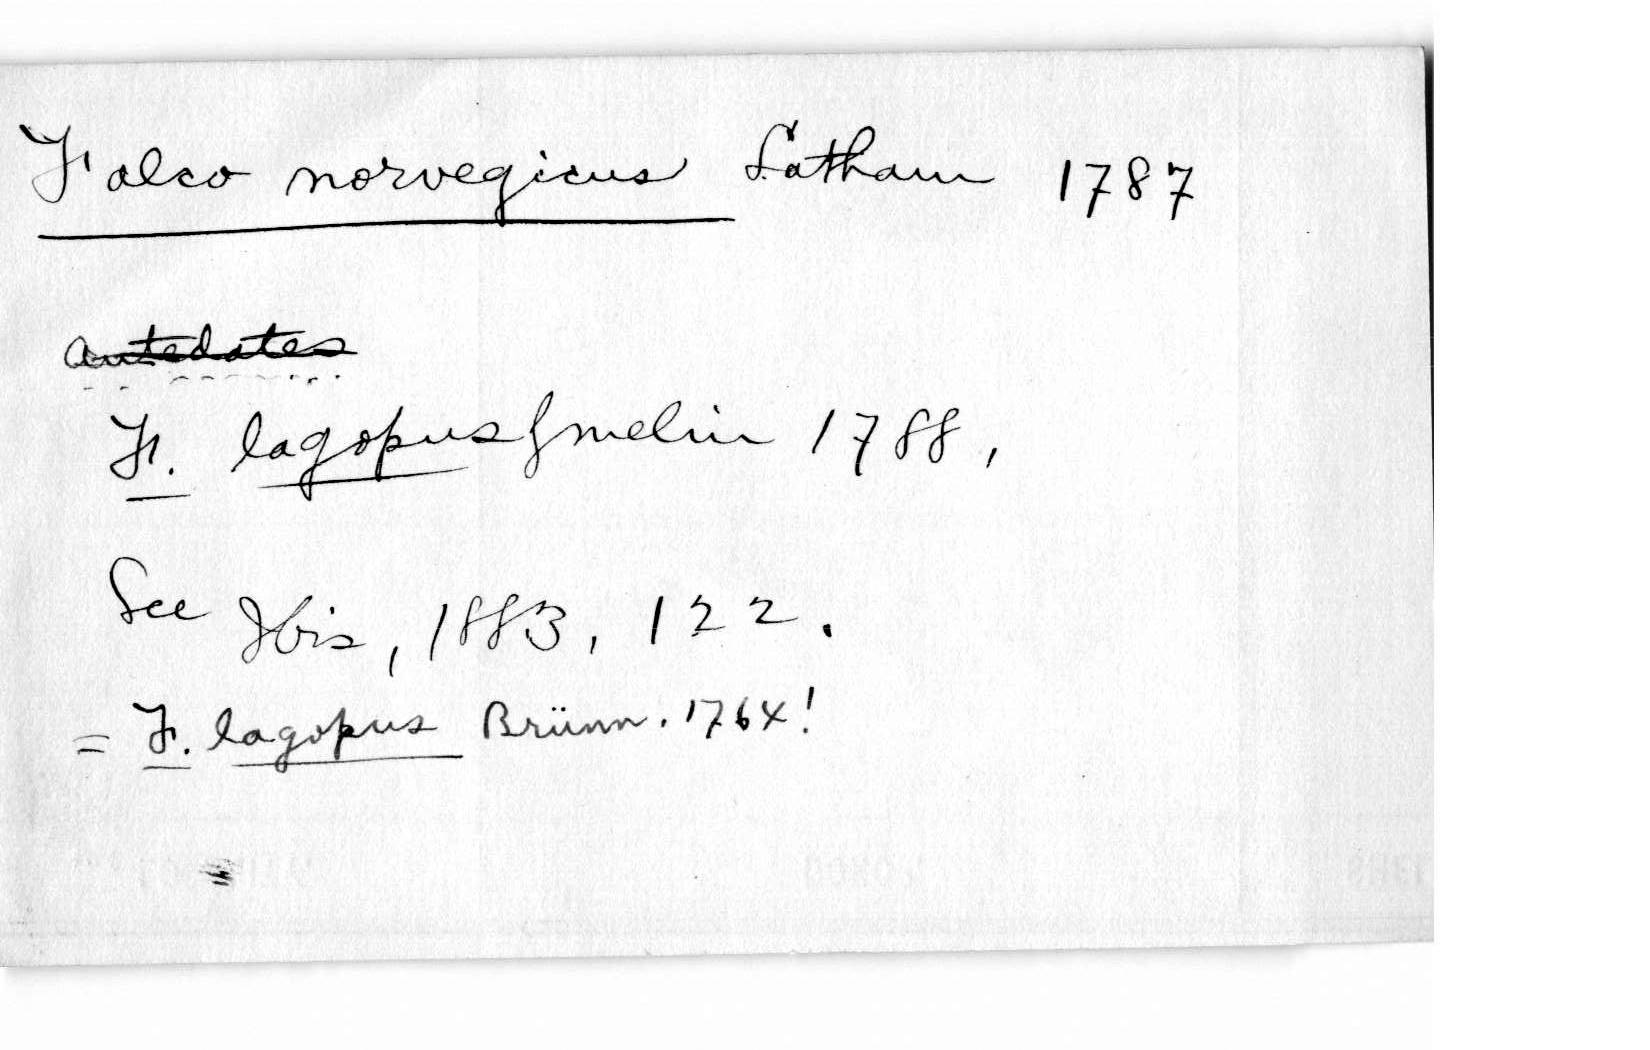 Falco norvegicus Latham 1787
antedates
F. lagopus Gmelin 1788,
See Ibis, 1883, 122.
= F. lagopus Brünn. 1764!